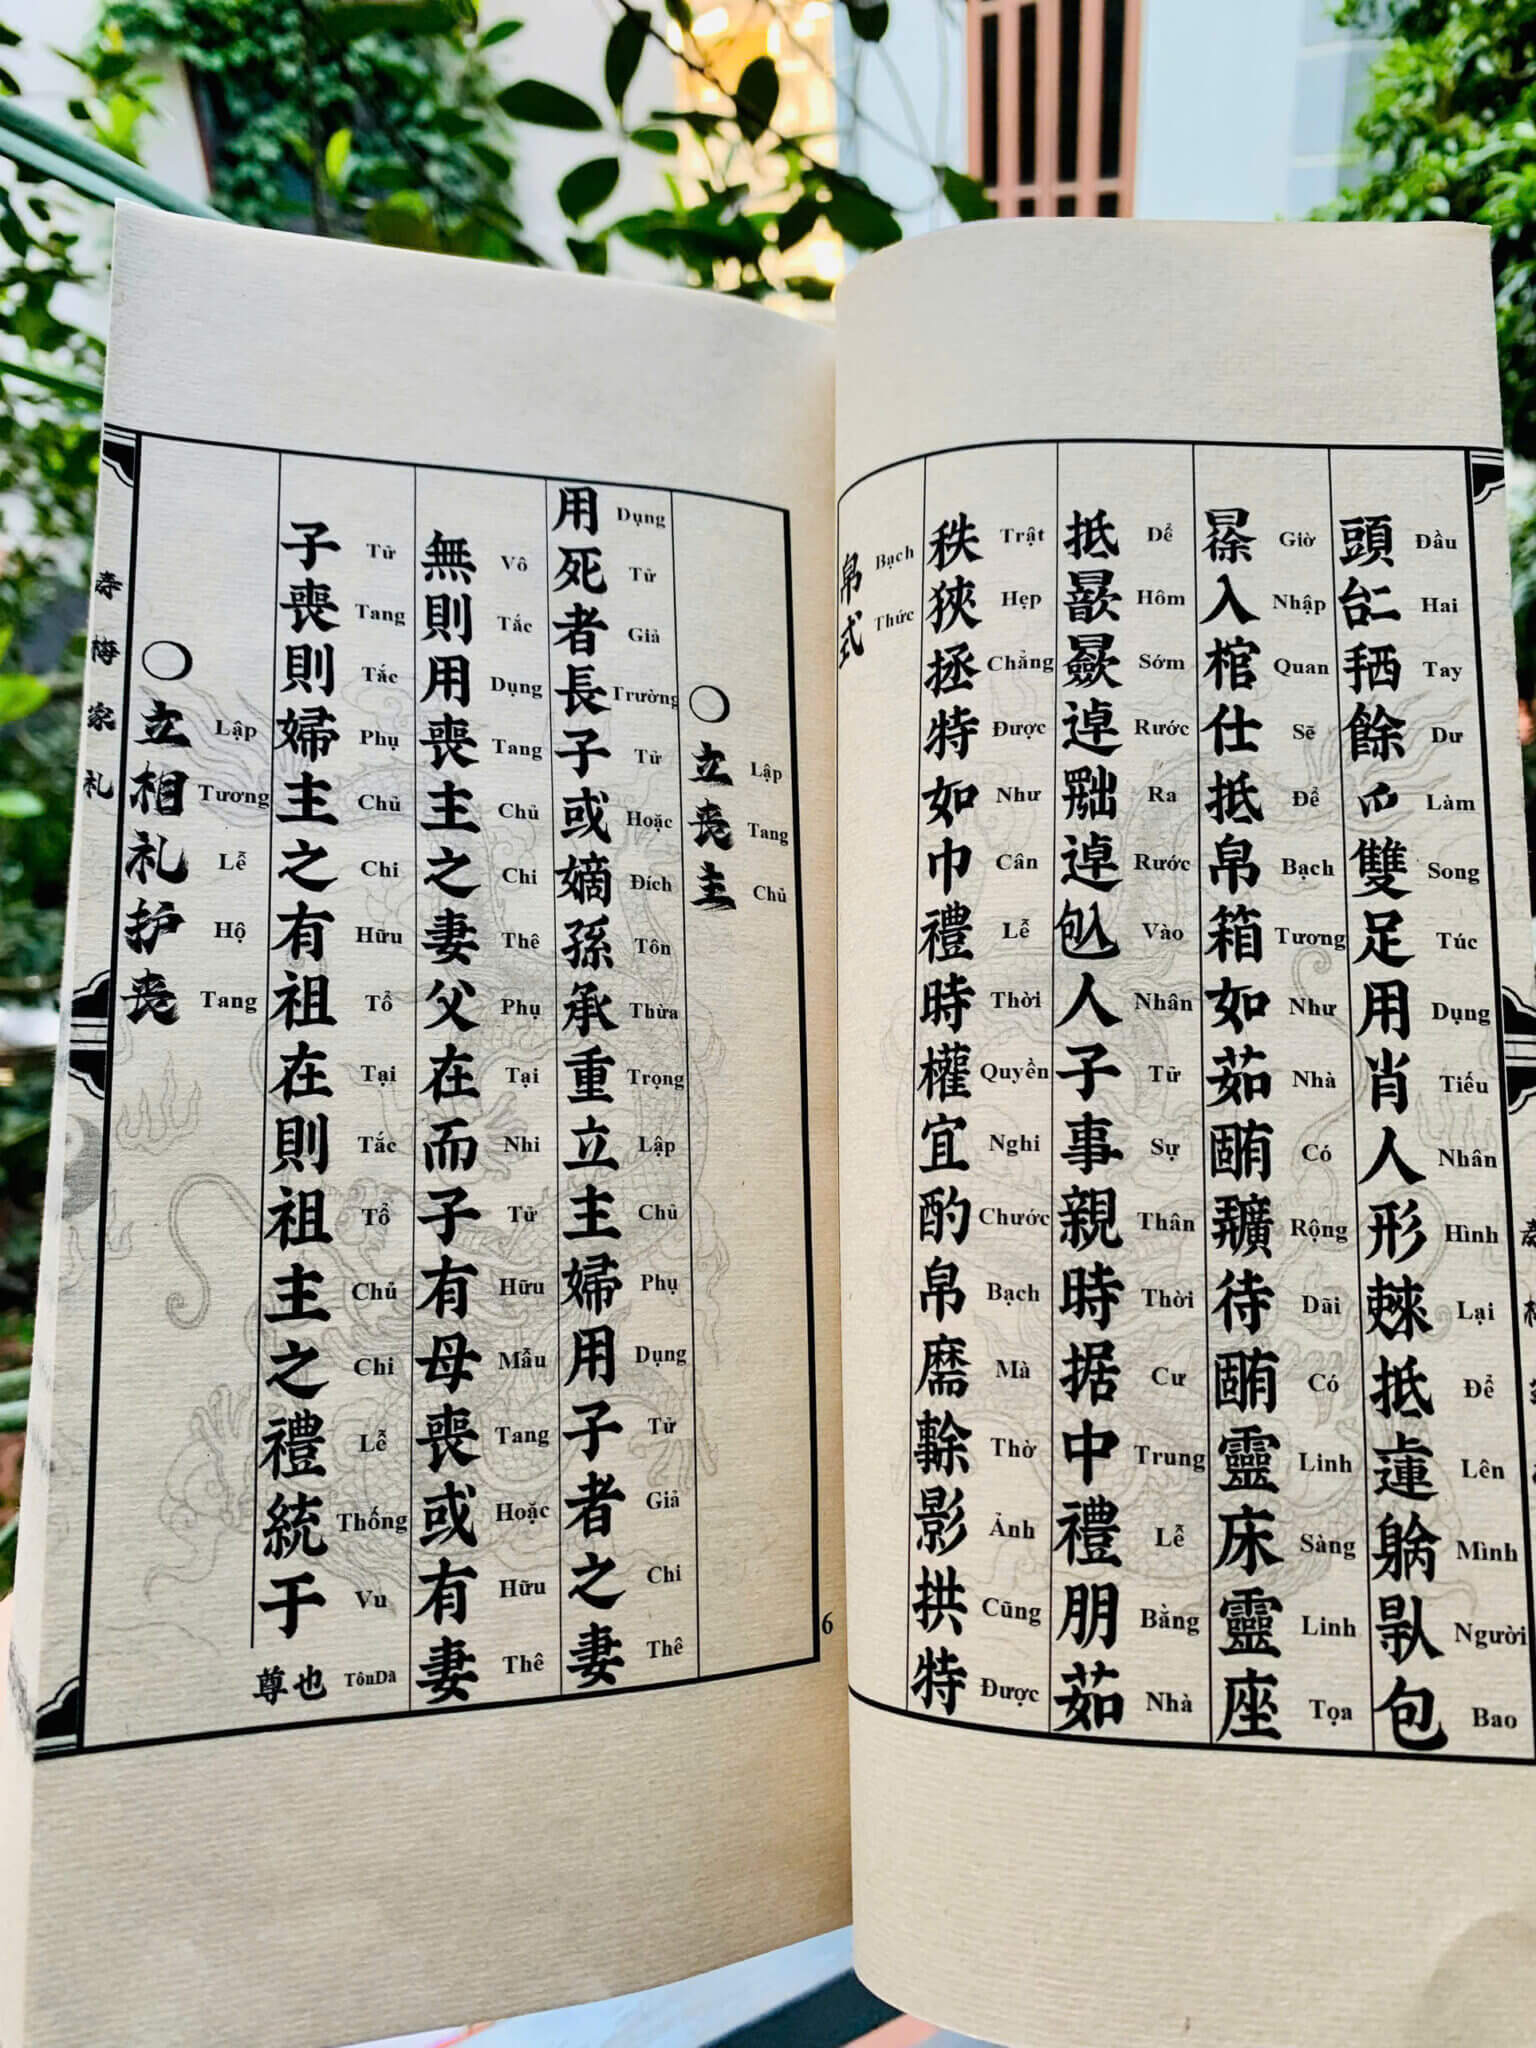 頭𠄩𢬣餘𫜵雙足用肖人形抵𨖲𠊛包
Đầu Hai Tay Dư Làm Song Túc Dụng Tiếu Nhân Hình Lại Để Lên Mình Người Bao
𣇞入棺仕抵帛箱如茹𣎏待𣎏靈床靈座
Giờ Nhập Quan Sẽ Để Bạch Tương Như Nhà Có Rộng Dãi Có Linh Sàng Linh Tọa
抵逴𠚢逴𠓨人子事親時据中禮朋茹
Để Hôm Sớm Rước Ra Rước Vào Nhân Tử Sự Thân Thời Cư Trung Lễ Bằng Nhà
秩狹拯特如巾禮時權宜酌帛影拱特
Trật Hẹp Chẳng Được Như Cân Lễ Thời Quyền Nghi Chước Bạch Mà Thờ Ảnh Cũng Được
帛式
Bạch Thức
〇立喪主
Lập Tang Chủ
用死者長子或嫡孫承重立主婦用子者之妻
Dụng Tử Giả Trường Tử Hoặc Đích Tôn Thừa Trọng Lập Chủ Phụ Dụng Tử Giả Chi Thê
無則用喪主之妻父在而子有母喪或有妻
Vô Tắc Dụng Tang Chủ Chi Thê Phụ Tại Nhi Tử Hữu Mẫu Tang Hoặc Hữu Thê
子喪則婦主之有祖在則祖主之禮統于尊也
Tử Tang Tắc Phụ Chủ Chi Hữu Tổ Tại Tắc Tổ Chủ Chi Lễ Thống Vu TônDã
〇立相礼护喪
Lập Tương Lễ Hộ Tang
寿梅家礼
6